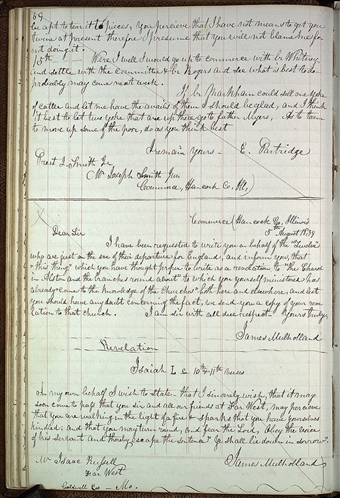 69
be apt to tear it to pieces, you perceive that I have not means to get you
twine at present therefore I presume that you will not blame me for
not doing it.
15th Were I well I would go up to commerce with br Whitney
and settle with the Committee & br Rogers and see what is best to do
probably may come next week.
If br Markham could sell one yoke
of cattle and let me have the avails of them I should be glad, and I think
it best to let two yoke that are up there go to father Myers, As to team
to move up some of the poor, do as you think best
I remain yours - E. Partridge
Prest J. Smith Jr
Mr Joseph Smith Jun
Commerce, Hancock Co, Ills,
Commerce (Hancock Co, Illinois
8th August 1839
Dear Sir
I have been requested to write you on behalf of the "Twelve"
who are just on the eve of their departure for England, and inform you, that
"this thing" which you have thought proper to write as a revelation to "the Church
in Alston and the branches round about" to which you yourself ministered has
already come to the knowledge of the Churches both here and elsewhere, and lest
you should have any doubt concerning the fact, we send you a copy of your reve
lation to that church. I am Sir with all due respect Yours truly,
James Mulholland
Revelation
Isaiah L & 10th 11th verses
On my own behalf I wish to state that I sincerely wish, that it may
soon come to pass that you sir and all our friends at Far West, may perceive
that you are walking in the light of a fire & sparks that you have yourselves
kindled; and that you may turn round, and fear the Lord, Obey the voice
of his servant and thereby escape the sentence "Ye shall lie down in sorrow".
Mr Isaac Russell James Mulholland
Far West
Caldwell Co - Mo.